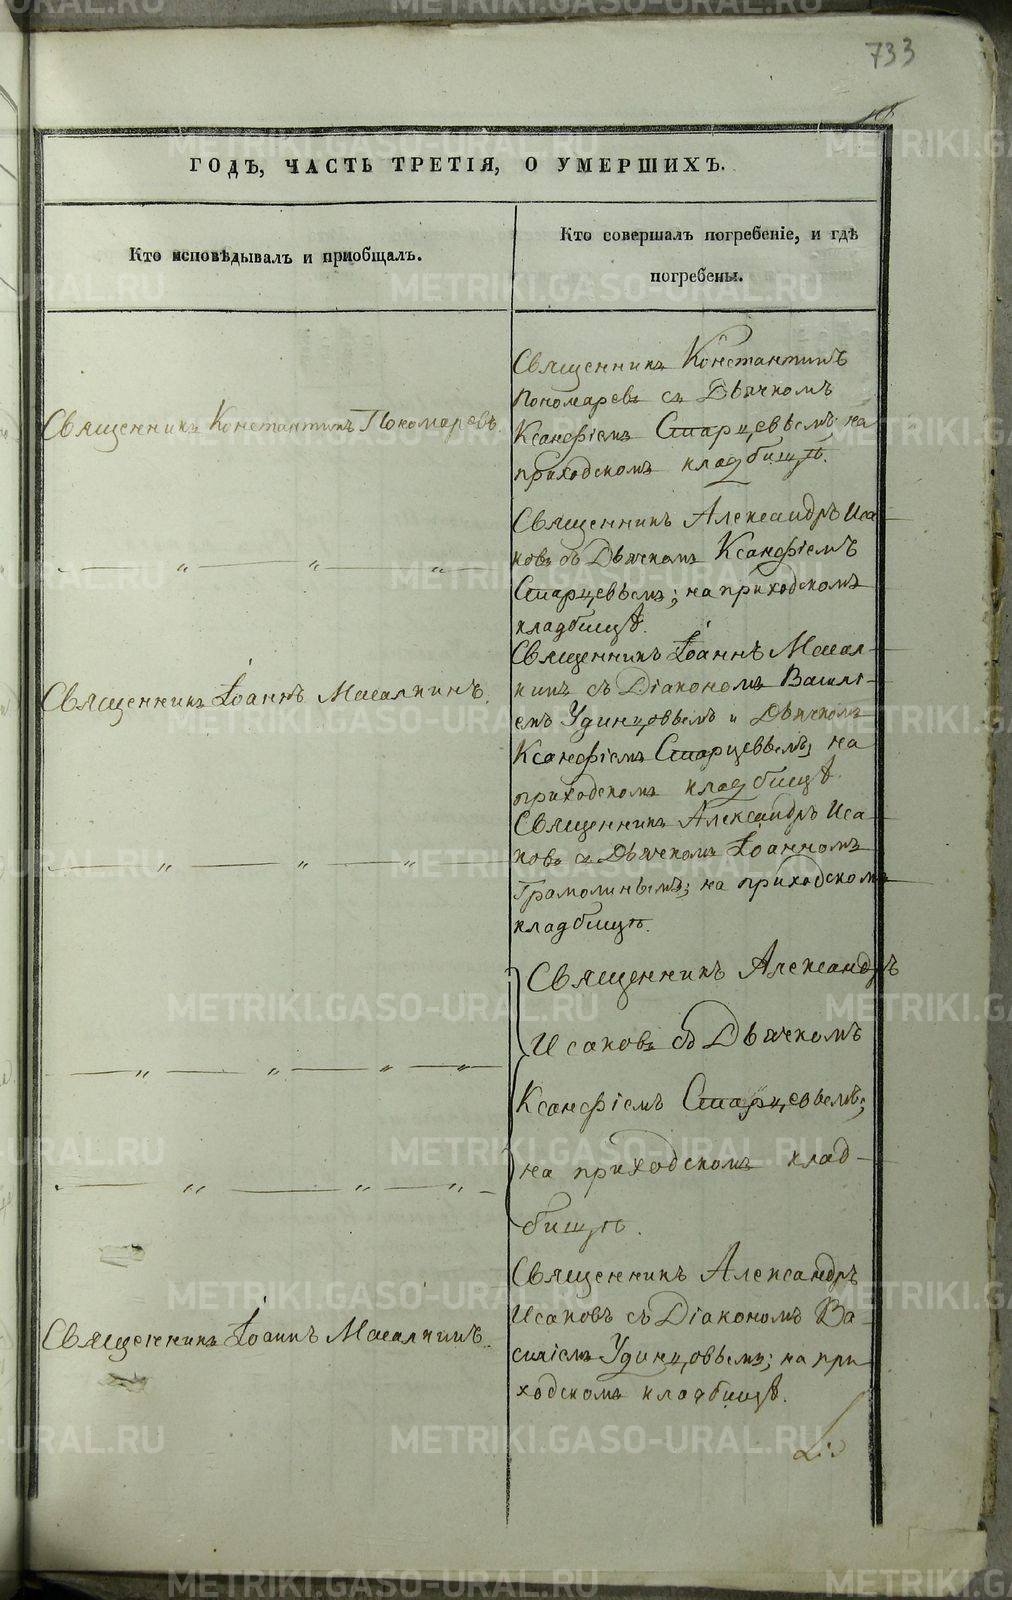 733
ГОДЪ, ЧАСТЬ ТРЕТІЯ, О УМЕРШИХЪ.
Кто исповѣдывалъ и приобщалъ.
Кто совершалъ погребеніе, и гдѣ
погребены.
Священникъ Константинъ Пономаревъ.
Священникъ Константинъ
Пономаревъ съ Дьячкомъ
Ксанфіемъ Старцевымъ, на
приходскомъ кладбищѣ.
— „ — „ — „ —
Священникъ Александръ Иса
ковъ съ Дьячкомъ Ксанфіемъ
Старцевымъ; на приходскомъ
кладбищѣ.
Священникъ Іоаннъ Масалкинъ.
Священникъ Іоаннъ Масал-
кинъ съ Діакономъ Василі-
емъ Удинцовымъ и Дьячкомъ
Ксанфіемъ Старцевымъ; на
приходскомъ кладбищѣ.
— „ — „ — „ —
Священникъ Александръ Иса-
ковъ съ Дьячкомъ Іоанномъ
Грамолинымъ; на приходскомъ
кладбищѣ.
— „ — „ — „ — „ —
— „ — „ — „ —
Священникъ Александръ
Исаковъ съ Дьячкомъ
Ксанфіемъ Старцевымъ;
на приходскомъ клад-
бищѣ.
Священникъ Іоаннъ Масалкинъ.
Священникъ Александръ
Исаковъ съ Діакономъ Ва-
силіемъ Удинцовымъ; на при-
ходскомъ кладбищѣ.
METRIKI.GASO-URAL.RU